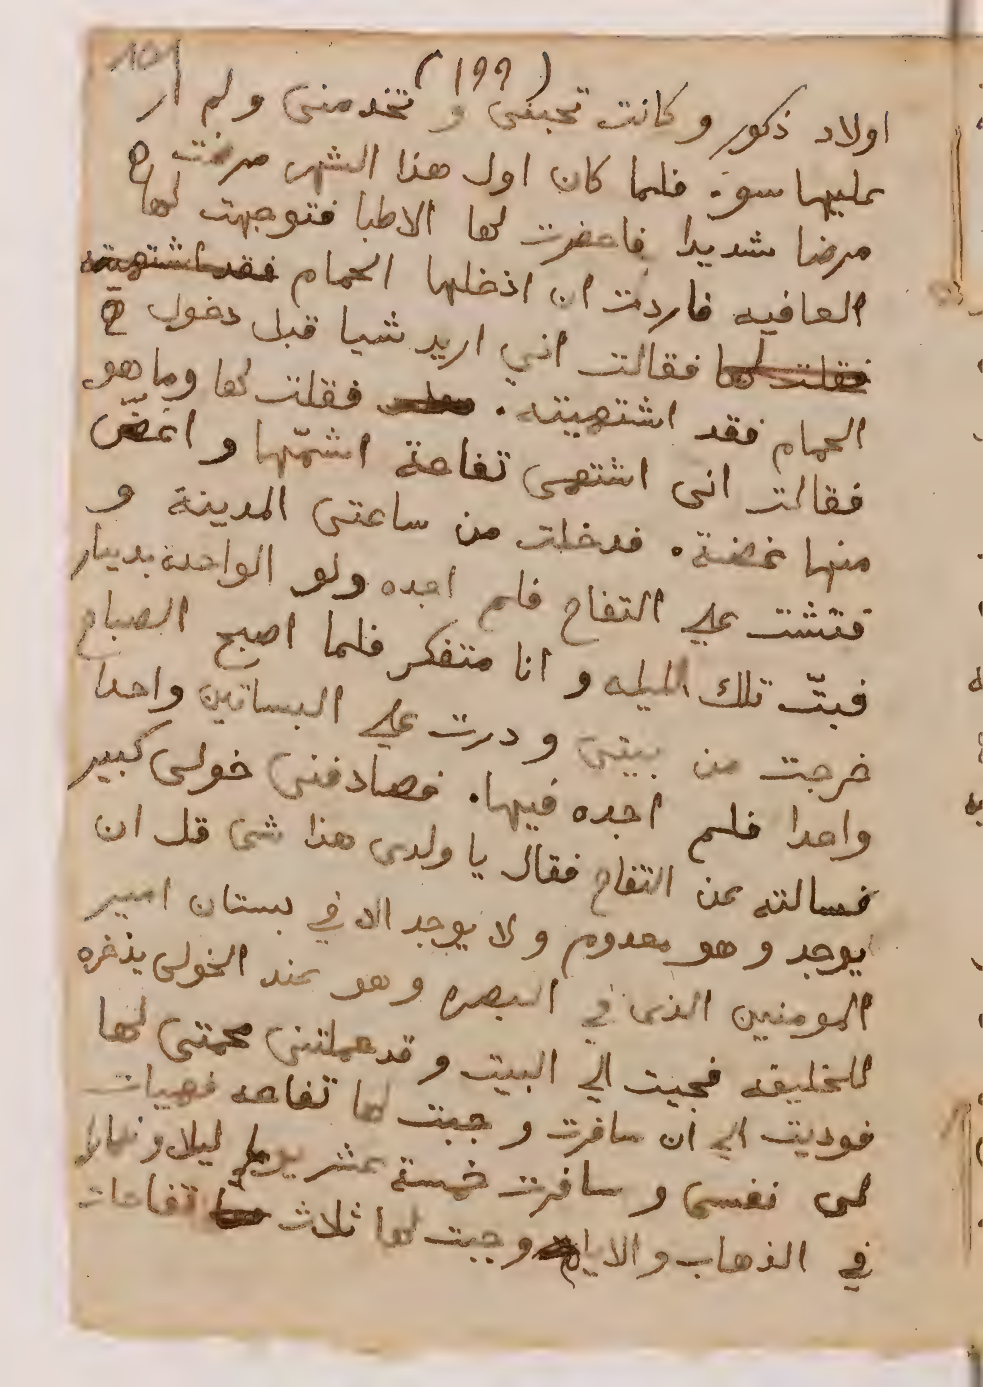 (199)
اولاد ذكور وكانت تحبنى و تخدمنى ولم ار
عليها سوء. فلما كان اول هذا الشهر مرضت
مرضا شديدا فاحضرت لها الاطبا فتوجهت لها
العافيه فاردت ان ادخلها الحمام فقد اشتهيته
فقلت لها فقالت اني اريد شيا قبل دخول
الحمام فقد اشتهيته. فقلت لها وما هو
فقالت انى اشتهى تفاحة اشمّها و اعضّ
منها عضة. فدخلت من ساعتى المدينة و
فتشت علي التفاح فلم اجده ولو الواحدة بدينار
فبتّ تلك الليله و انا متفكر فلما اصبح الصباح
خرجت من بيتى و درت علي البساتين واحدا
واحدا فلم اجده فيها. فصادفنى خولى كبير
فسالته عن التفاح فقال يا ولدى هذا شى قل ان
يوجد و هو معدوم و لا يوجد الا في بستان امير
المومنين الذى في البصره و هو عند الخولى يذخره
للخليفه فجيت الي البيت و قد حملتنى محبتى لها
فوديت الي ان سافرت و جبت لها تفاحه فهيات
لى نفسى و سافرت خمسة عشر يوما ليلا و نهارا
في الذهاب و الاياب و جبت لها ثلاث تفاحات